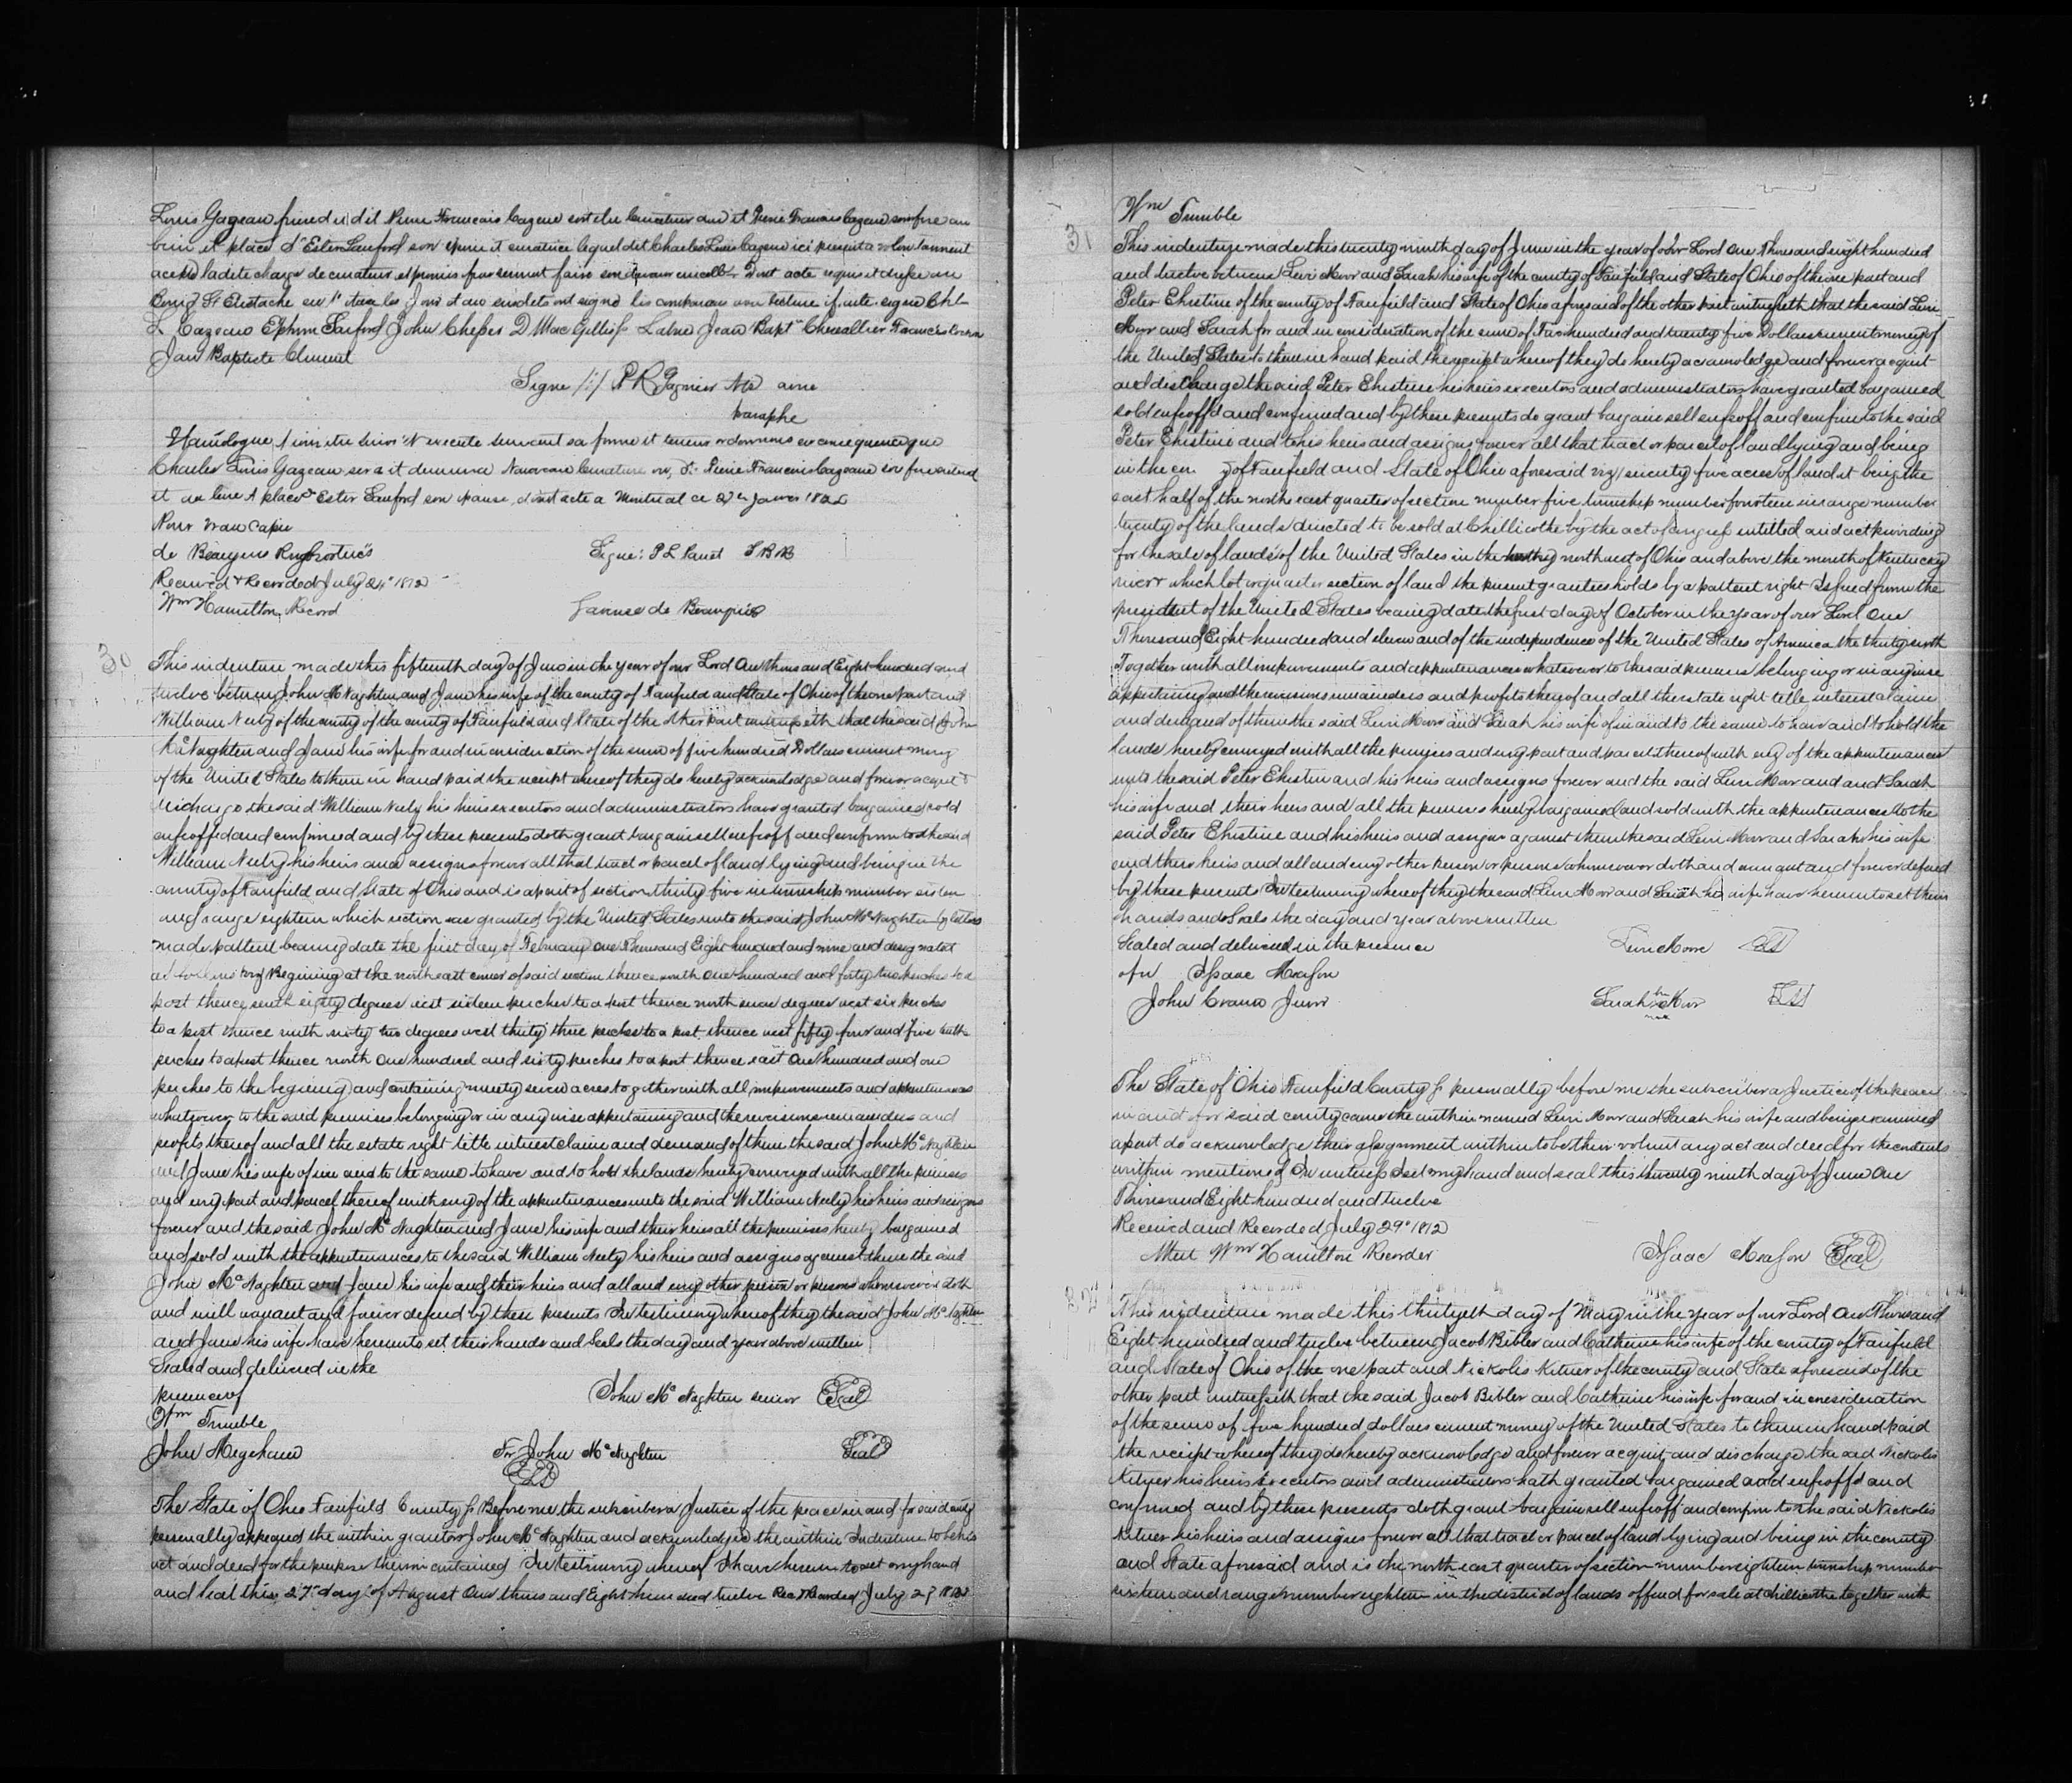 Louis Gazeau dit Pierre Francois Cazeau Pierre Francois Cazeau
place d'Ester Sanford son et curatrice lequel dit Charles Louis Cazeau ici present
ladite charge de curateur et promis par serment faire son
St Eustache ont signé les
L Cazeau Ephrm Sanford John Chesser D Mac Gilliss Labue Jean Bapt Chevallier Francois
Jean Baptiste Clement
Signe /:/ P R Gagnier Nt
paraphe
execute suivant sa forme et teneur ordonnons en consequence que
Charles Louis Gazeau sera et demeura Nouveau Curateur Pierre Francois Cazeau
et au lieu & place d'Ester Sanford son dont acte a Montreal ce 27
Pour vrai Copie
de Beaujeu
Signe: P L Panet J B R
Received & Recorded July 24th 1812
Wm Hamilton, Record
de
30
This indenture made this fifteenth day of June in the year of our Lord One thousand Eight hundred and
twelve between John McNaghten and Jane his wife of the county of Fairfield and State of Ohio of the one part and
William Neely of the county of the county of Fairfield and State of the other part witnesseth that the said John
McNaghten and Jane his wife for and in consideration of the sum of five hundred Dollars current money
of the United States to them in hand paid the receipt whereof they do hereby acknowledge and forever acquit &
discharge the said William Neely his heirs executors and administrators have granted bargained sold
enfeoffed and confirmed and by these presents doth grant bargain sell enfeoff and confirm to the said
William Neely his heirs and assigns forever all that tract or parcel of land lying and being in the
county of Fairfield and State of Ohio and is a part of section thirty five in township number sixteen
and range eighteen which section was granted by the United States unto the said John McNaghten by letters
made pattent bearing date the first day of February One Thousand Eight hundred and nine and designated
as follows Begining at the northeast corner of said section thence south One hundred and forty two perches to a
post thence south eighty degrees west sixteen perches to a post thence north degrees west six perches
to a post thence north sixty two degrees west thirty three perches to a post thence west fifty four and five tenths
perches to a post thence north One hundred and sixty perches to a post thence east One hundred and one
perches to the begining and containing ninety seven acres together with all improvements and appurtenances
whatsoever to the said premises belonging or in any wise appertaining and the revisions remainders and
profits thereof and all the estate right title interest claim and demand of them the said John McNaghten
and Jane his wife of in and to the same to have and to hold the lands hereby conveyed with all the premises
and evry part and parcel thereof with evry of the appurtenances unto the said William Neely his heirs and assigns
forever and the said John McNaghten and Jane his wife and their heirs all the premises hereby bargained
and sold with the appurtenances to the said William Neely his heirs and assigns against them the said
John McNaghten and Jane his wife and their heirs and all and evry other person or persons whomsoever doth
and will warrant and forever defend by these presents In testimony whereof they the said John McNaghten
and Jane his wife have hereunto set their hands and Seals the day and year above written
Sealed and delivered in the
presence of
John McNaghten senior Seal
Wm Trimble
John Megehaw
For John McNaghten Seal
The State of Ohio Fairfield County ss Before me the subscriber a Justice of the peace in and for said county
personally appeared the within grantor John McNaghten and acknowledged the within Indenture to be his
act and deed for the purpose therein contained In testimony whereof I have hereunto set my hand
and seal this 27th day of August One thousand Eight hundred twelve Recd & Recorded July 29 1812
Wm Trimble
31
This indenture made this twenty ninth day of June in the year of our Lord One Thousand eight hundred
and twelve between Levi Moor and Sarah his wife of the county of Fairfield and State of Ohio of the one part and
Peter Ehistine of the county of Fairfield and State of Ohio aforesaid of the other part witnesseth that the said Levi
Moor and Sarah for and in consideration of the sum of hundred and twenty five Dollars current money of
the United States to them in hand paid the receipt whereof they do hereby acknowledge and forever acquit
and discharge the said Peter Ehistine his heirs executors and administrators have granted bargained
sold enfeoffd and confirmed and by these presents do grant bargain sell enfeoff and confirm to the said
Peter Ehistine and to his heirs and assigns forever all that tract or parcel of land lying and being
in the of Fairfield and State of Ohio aforesaid viz) seventy five acres of land it being the
east half of the north east quarter of section number five township number fourteen in range number
twenty of the lands directed to be sold at Chillicothe by the act of congress intitled and act providing
for the sale of lands of the United States in the northwest of Ohio and above the mouth of Kentuckey
river which lot or quarter section of land the present grantees holds by a pattent right Issued from the
president of the United States bearing date the first day of October in the year of our Lord One
Thousand Eight hundred and eleven and of the independence of the United States of America the thirty sixth
Together with all improvements and appurtenances whatsoever to the said premises belonging or in anywise
appertaining and the revisions remainders and profits thereof and all the estate right title interest claim
and demand of them the said Levi Moor and Sarah his wife of in and to the same to have and to hold the
lands hereby conveyed with all the premises and evry part and parcel thereof with evry of the appurtenances
unto the said Peter Ehistine and his heirs and assigns forever and the said Levi Moor and and Sarah
his wife and their heirs and all the premises hereby bargained and sold with the appurtenances to the
said Peter Ehistine and his heirs and assigns against them the said Levi Moor and Sarah his wife
and their heirs and all and evry other person or persons whomsoever doth and warrant and forever defend
by these presents In testimony whereof they the said Levi Moor and Sarah his wife have hereunto set their
hands and Seals the day and year above written
Sealed and delivered in the presence
Levi Moore LS
of us Isaac Meason
John Cravin Junr
Sarah her Moor LS
mark
The State of Ohio Fairfield County ss personally before me the subscriber a Justice of the peace
in and for said county came the within named Levi Moor and Sarah his wife and being examined
apart do acknowledge their assignment within to be their voluntary act and deed for the contents
within mentioned In witness I set my hand and seal this twenty ninth day of June One
Thousand Eight hundred and twelve
Received and Recorded July 29th 1812
Attest Wm Hamilton Recorder
Isaac Meason Seal
32
This indenture made this thirtyeth day of May in the year of our Lord One Thousand
Eight hundred and twelve between Jacob Bibler and Catherine his wife of the county of Fairfield
and State of Ohio of the one part and Nickolis Kitner of the county and State aforesaid of the
other part witnesseth that the said Jacob Bibler and Catherine his wife for and in consideration
of the sum of five hundred dollars current money of the United States to them in hand paid
the reciept whereof they do hereby acknowledge and forever acquit and discharge the said Nickolis
Kitner his heirs executors and administrators hath granted bargained and enfeoffd and
confirmed and by these presents doth grant bargain sell enfeoff and confirm to the said Nickolis
Kitner his heirs and assigns forever all that tract or parcel of land lying and being in the county
and State aforesaid and is the north east quarter of section number eighteen township number
sixteen and range number eighteen in the district of lands offered for sale at chillicothe together with